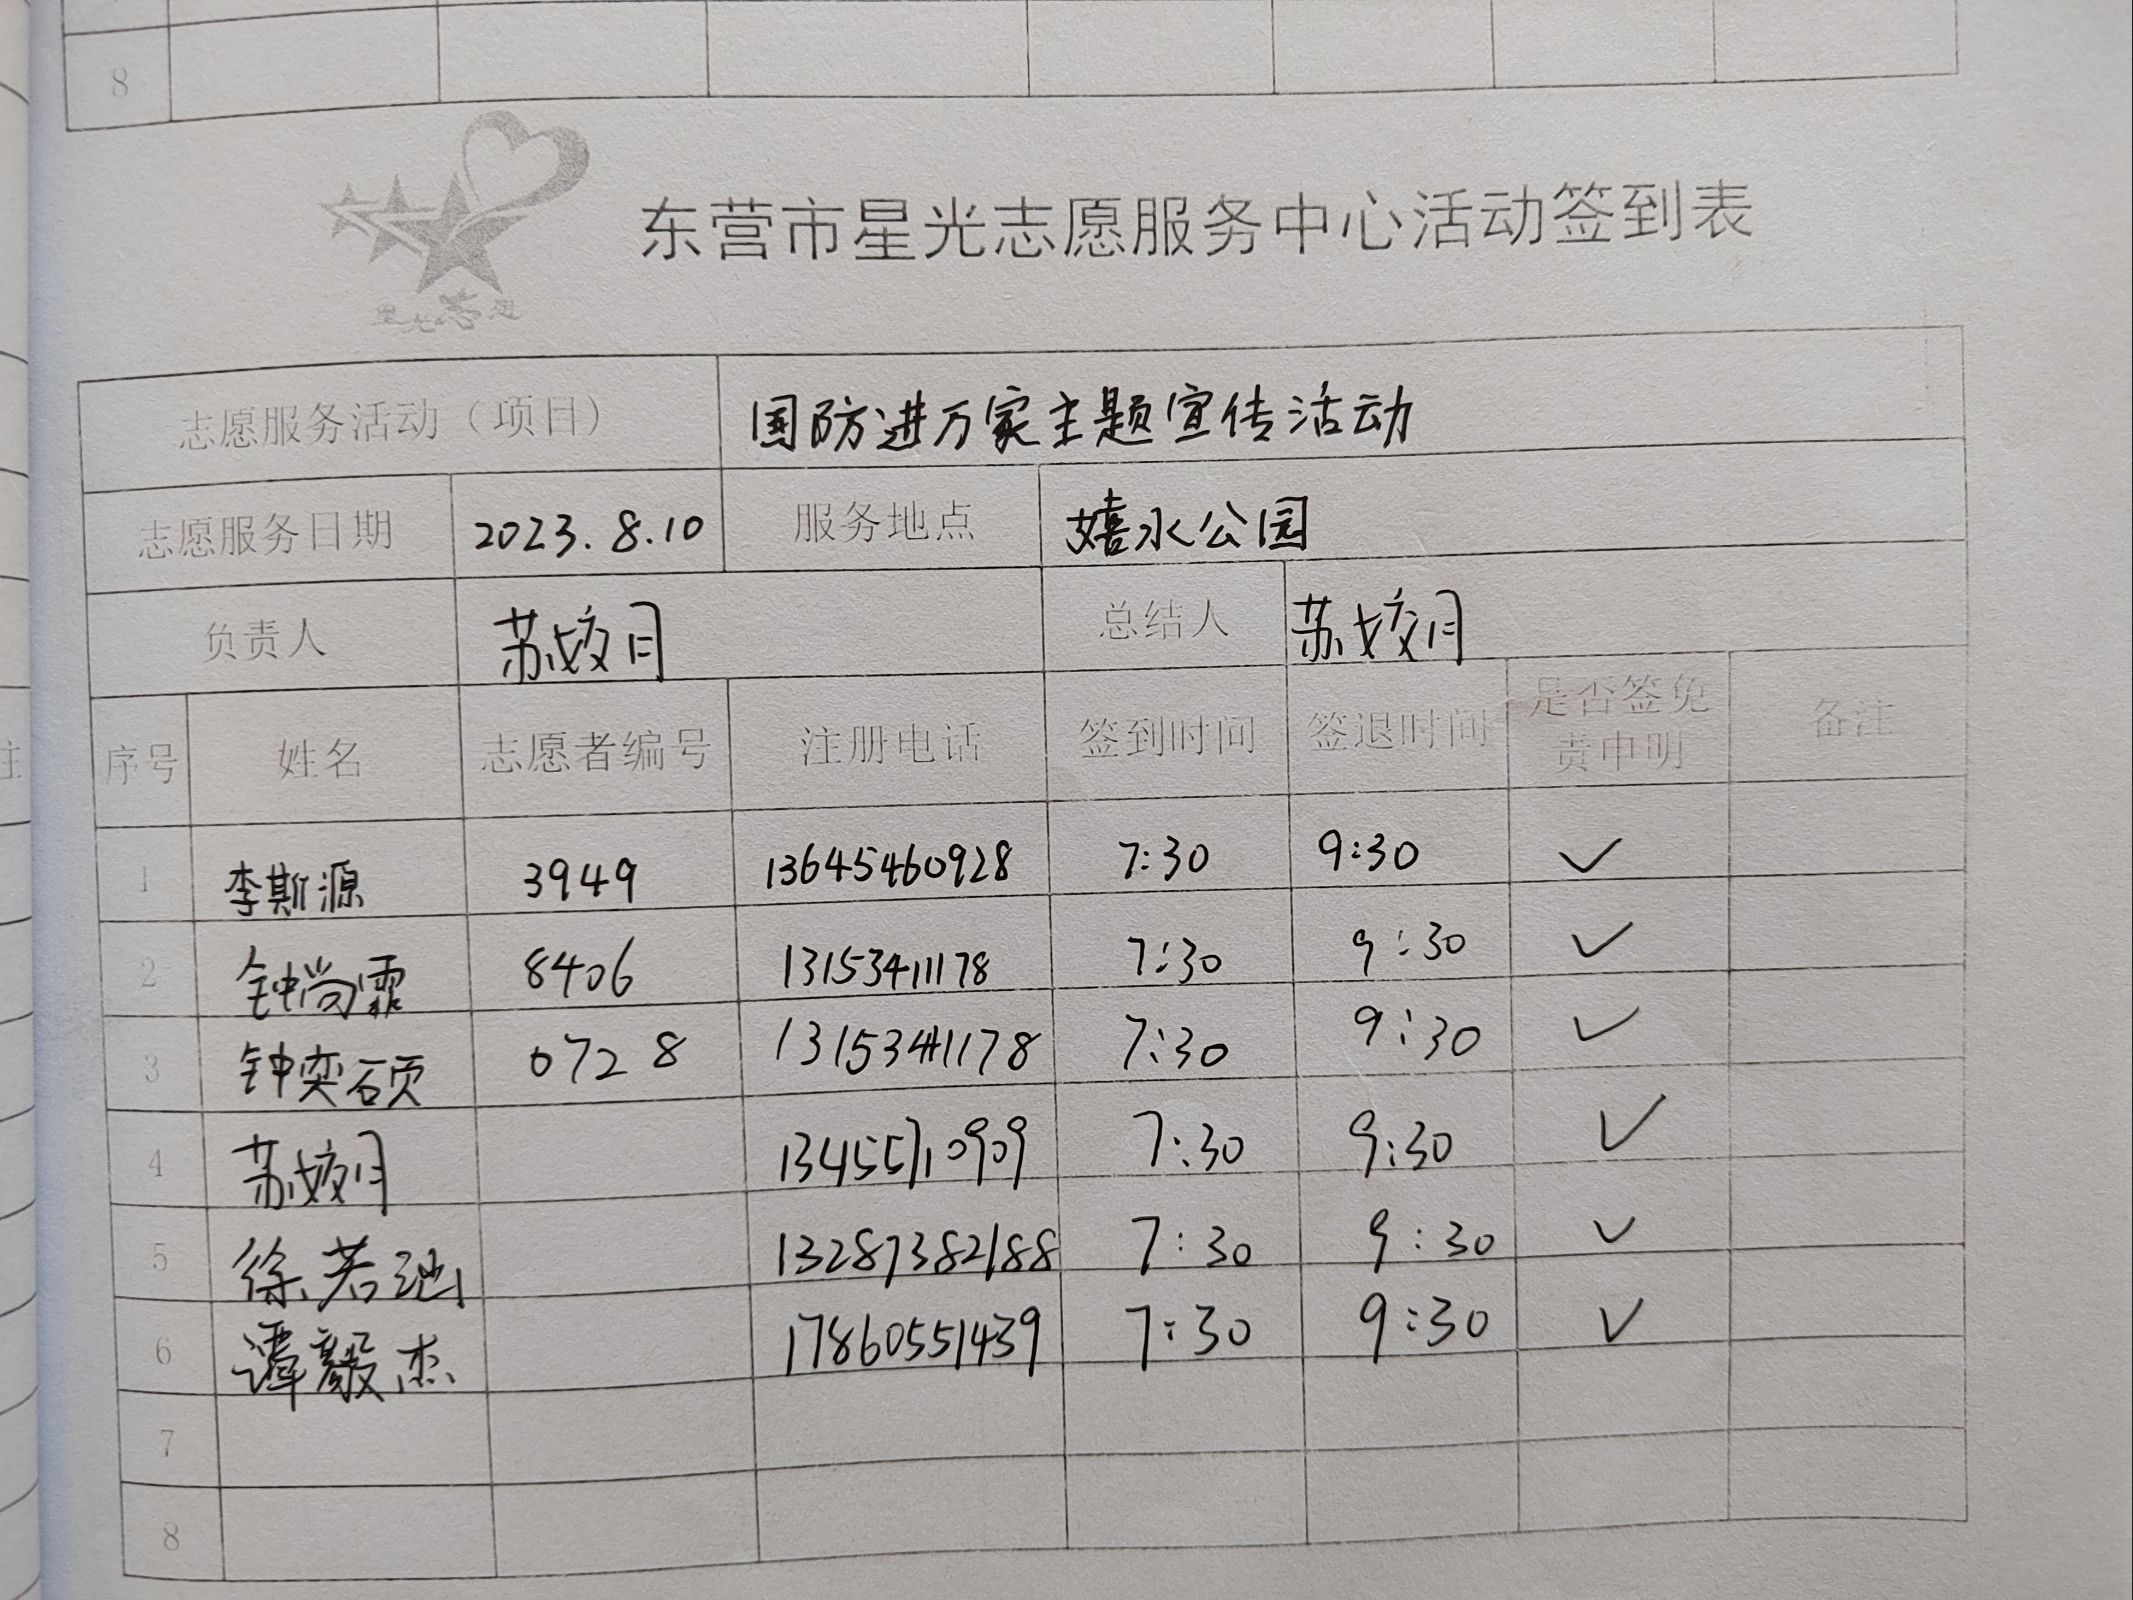 8
星光志愿
东营市星光志愿服务中心活动签到表
志愿服务活动（项目） 国防进万家主题宣传活动
志愿服务日期 2023.8.10 服务地点 嬉水公园
负责人 苏姣月 总结人 苏姣月
序号 姓名 志愿者编号 注册电话 签到时间 签退时间 是否签免责申明 备注
1 李斯源 3949 13645460928 7:30 9:30 ✓
2 钟尚霏 8406 13153411178 7:30 9:30 ✓
3 钟奕硕 0728 13153411178 7:30 9:30 ✓
4 苏姣月 13455710909 7:30 9:30 ✓
5 徐若 13287382188 7:30 9:30 ✓
6 谭毅杰 17860551439 7:30 9:30 ✓
7
8
注